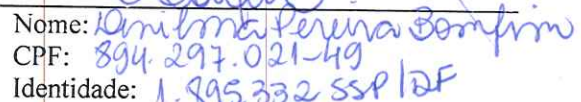 Nome: Danilma Pereira Bomfim
CPF: 894.297.021-49
Identidade: 1.895.332 SSP/DF